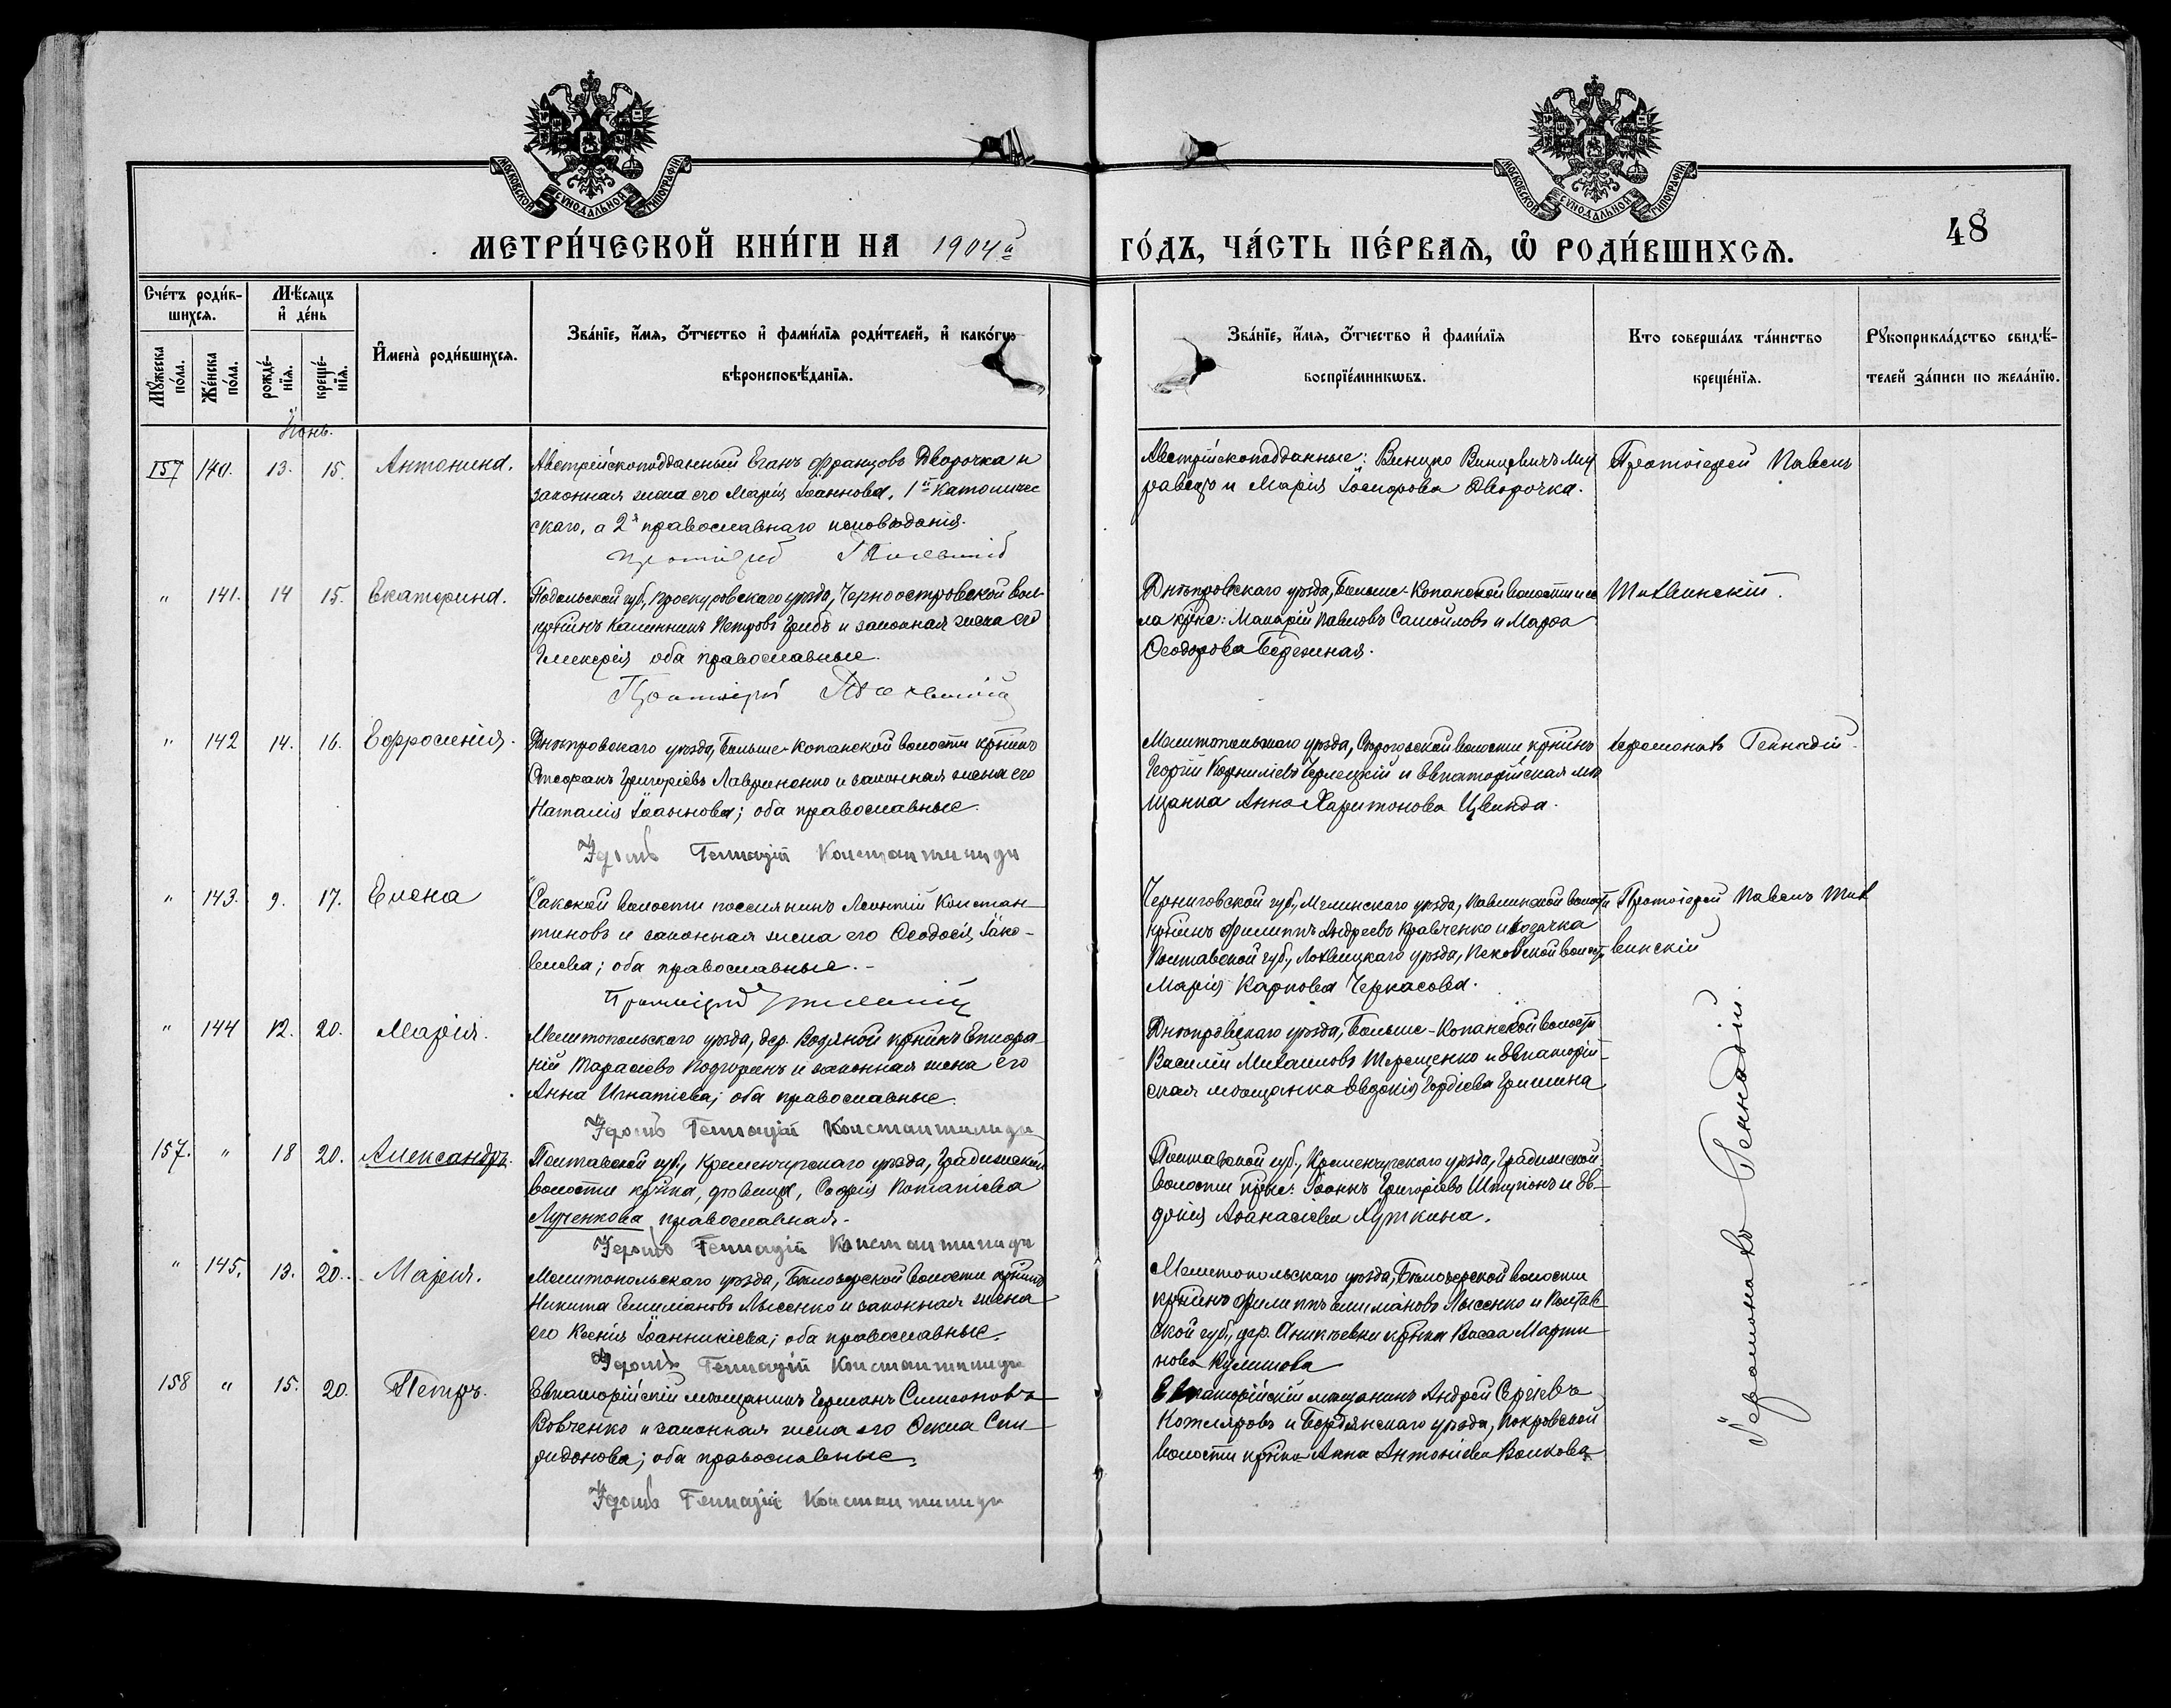 МОСКОВСКОЙ СУНОДАЛЬНОЙ ТИПОГРАФІИ
МОСКОВСКОЙ СУНОДАЛЬНОЙ ТИПОГРАФІИ
МЕТРИ́ЧЕСКОЙ КНИ́ГИ НА 1904й
ГО́ДЪ, ЧА́СТЬ ПЕ́РВАѦ, Ѡ РОДИ́ВШИХСѦ.
48
Сче́тъ роди́в-
шихся.
Мѣ́сяцъ
и де́нь
Мꙋжеска по́ла.
Же́нска по́ла.
рожде́-
нїя.
креще́-
нїя.
Имена̀ роди́вшихся.
Зва́нїе, и́мя, о́тчество и фами́лїя роди́телей, и како́гѡ
вѣроисповѣ́данїя.
Зва́нїе, и́мя, о́тчество и фами́лїя
воспрїе́мникѡвъ.
Кто соверша́лъ та́инство
креще́нїя.
Рꙋкоприкла́дство свидѣ́-
телей за́писи по жела́нїю.
Іюнь.
157 140. 13. 15. Антонина.
Австрійскоподданный Еганъ Францовъ Дворочка и
законная жена его Марія Іоаннова, 1й католиче
скаго, а 2я православнаго исповѣданія.
Австрійскоподданные:
и Марія Дворочка.
Протоіерей Павелъ
" 141. 14 15. Екатерина.
Подольской губ., Проскуровскаго уѣзда, Черноостровской вол.
крнинъ Калинникъ Петровъ Грибъ и законная жена его
Гликерія оба православные.
Протоіерей
Днѣпровскаго уѣзда, Больше-Копанской волости и се
ла крне: Макарій Павловъ Самойловъ и Марѳа
Ѳеодорова
Тихвинскій.
" 142 14. 16. Евфросинія.
Днѣпровскаго уѣзда, Больше-Копанской волости крнинъ
Стефанъ Григоріевъ Лавриненко и законная жена его
Наталія Іоаннова; оба православные.
Іеромъ Геннадій Константиниди
Мелитопольскаго уѣзда, волости крнинъ
Георгій Корниліевъ и Евпаторійская мѣ
щанка Анна Харитонова Цвинда.
Іеромонахъ Геннадій.
" 143. 9. 17. Елена
Сакской волости поселянинъ Леонтій Констан
тиновъ и законная жена его Ѳеодосія Іако-
влева; оба православные.-
Протоіерей
Черниговской губ., уѣзда, волости
крнинъ Филиппъ Андреевъ Кравченко и козачка
Полтавской губ., Лохвицкаго уѣзда, волости
Марія Карпова Черкасова.
Протоіерей Павелъ Тих
винскій
" 144 12. 20. Марія.
Мелитопольскаго уѣзда, дер. Водяной крнинъ Епифа
ній Тарасіевъ и законная жена его
Анна Игнатіева; оба православные.
Іеромъ Геннадій Константиниди
Днѣпровскаго уѣзда, Больше-Копанской волости
Василій Михаиловъ Терещенко и Евпаторій-
ская мѣщанка Евдокія Гришина
157. " 18 20. Александръ.
Полтавской губ., Кременчугскаго уѣзда, Градижской
волости крнка, дѣвица, Софія Потапіева
Лученкова, православная.
Іеромъ Геннадій Константиниди
Полтавской губ., Кременчугскаго уѣзда, Градижской
волости крне: Іоаннъ Григоріевъ и Ев-
докія Аѳанасіева
" 145. 13. 20. Марія.
Мелитопольскаго уѣзда, Бѣлозерской волости крнинъ
Никита Емиліановъ Лысенко и законная жена
его Ксенія Іоанникіева; оба православные.
Іеромъ Геннадій Константиниди
Мелитопольскаго уѣзда, Бѣлозерской волости
крнинъ Филиппъ Емиліановъ Лысенко и Полтав
ской губ., дер. Аникѣевки крнка Васса Марти
нова Кулишова
158 " 15. 20. Петръ.
Евпаторійскій мѣщанинъ Германъ Симеоновъ
Вовченко и законная жена его Ѳекла Спи-
ридонова; оба православные.
Іеромъ Геннадій Константиниди
Евпаторійскій мѣщанинъ Андрей Сергіевъ
Котляровъ и Бердянскаго уѣзда, Покровской
волости крнка Анна Антоніева Волкова
Іеромонахъ Геннадій